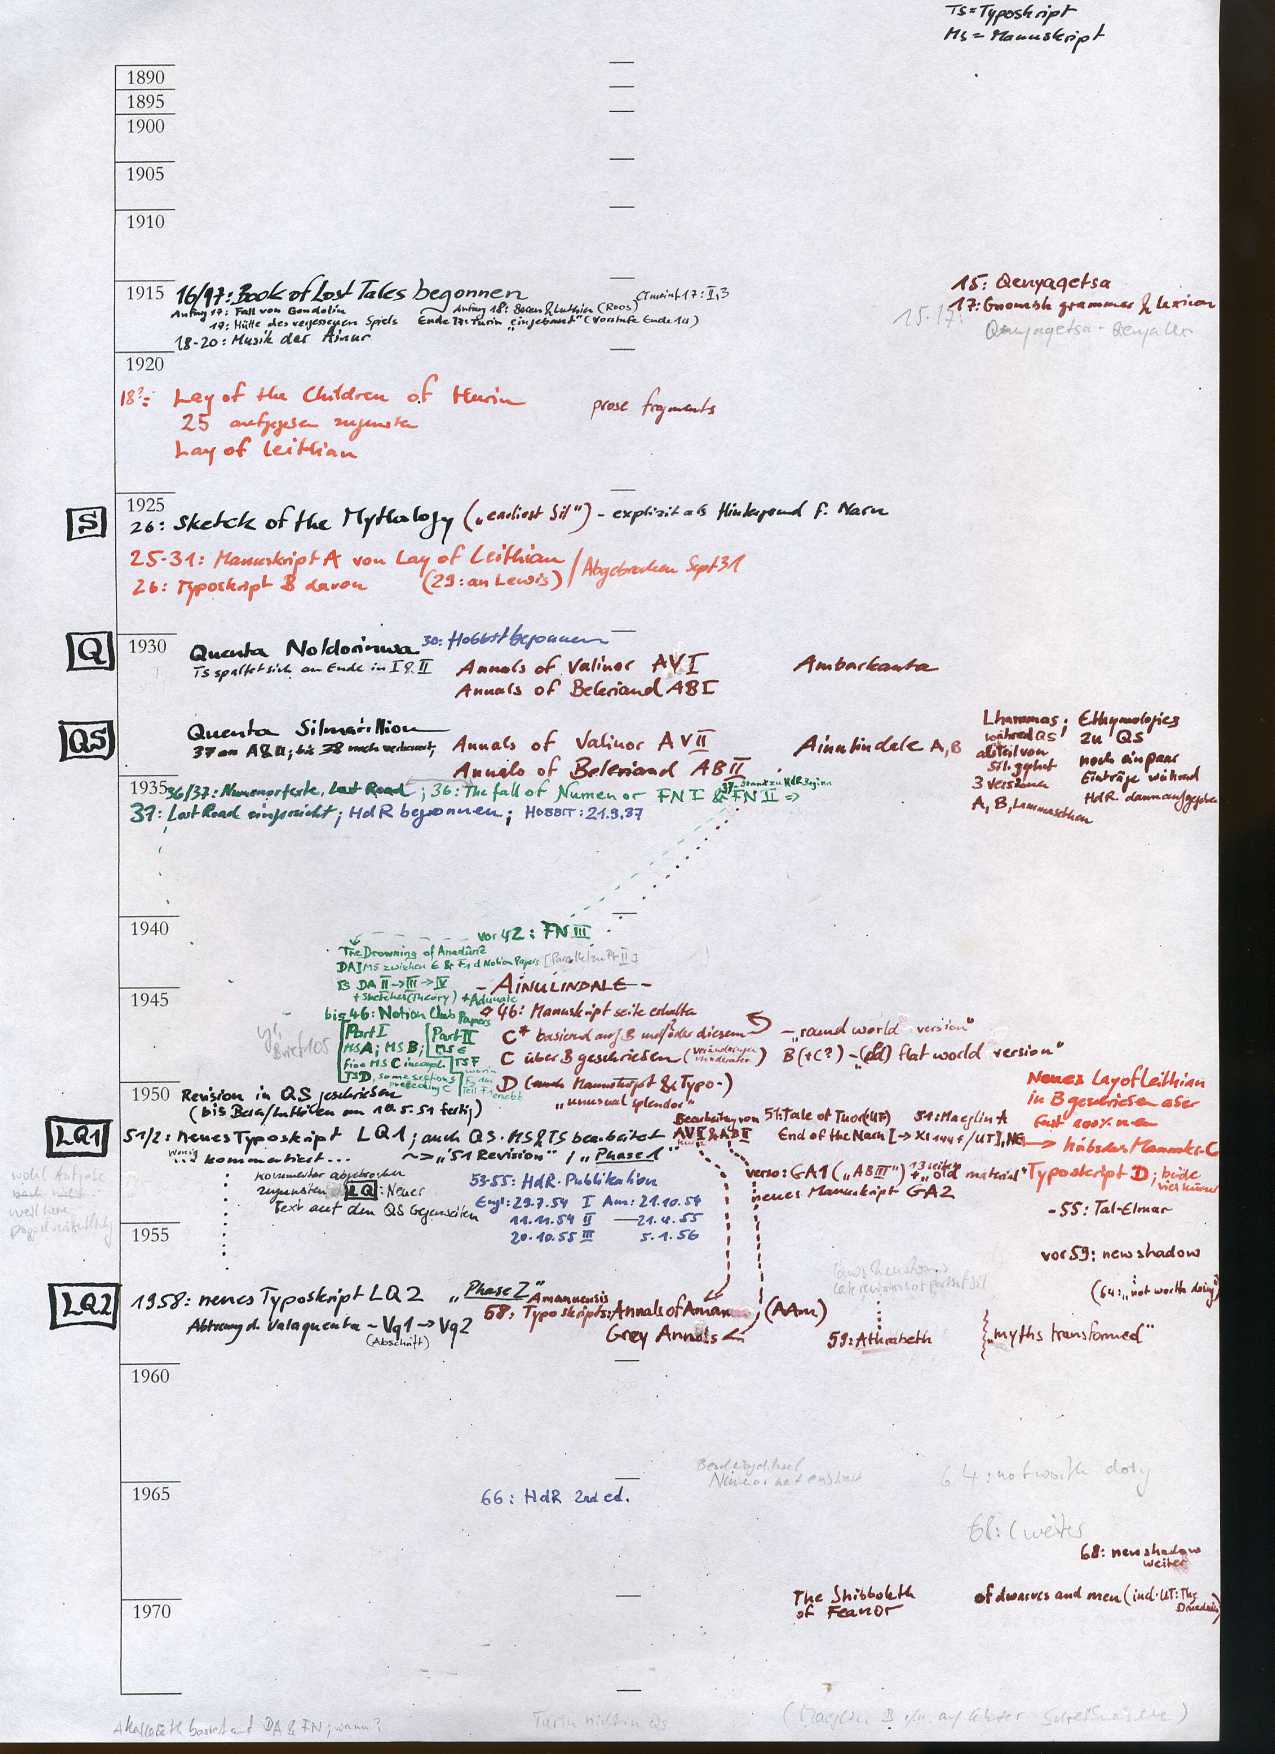 Ts = Typoskript
Ms = Manuskript
1890
1895
1900
1905
1910
1915
16/17: Book of Lost Tales begonnen
Anfang 17: Fall von Gondolin
17: Hütte des vergessenen Spiels
Ende 17: Turin „eingebaut" (Vorstufe Ende 14)
18-20: Musik der Ainur
15: Qenyaqetsa
17: Gnomish grammar & lexicon
15-17:
1920
18?: Lay of the Children of Hurin
25 aufgegeben zugunsten
Lay of Leithian
prose fragments
1925
S
26: Sketch of the Mythology („earliest Sil") - explizit als Hintergrund f. Narn
25-31: Manuskript A von Lay of Leithian
26: Typoskript B davon (29: an Lewis) / Abgebrochen Sept 31
1930
Q
Quenta Noldorinwa
30: Hobbit begonnen
Ts spaltet sich am Ende in I & II
Annals of Valinor AV I
Annals of Beleriand AB I
Ambarkanta
QS
Quenta Silmarillion
Annals of Valinor AV II
Annals of Beleriand AB II
Ainulindale A, B
Lhammas:
während QS
als Teil von
Sil. geplant
3 Versionen
A, B, Lammasethen
Ethymologies
zu QS
noch ein paar
Einträge während
HdR dann aufgegeben
1935
36/37: Numenortexte, Last Road; 36: The fall of Numenor FN I & FN II =>
37: Last Road eingereicht; HdR begonnen; HOBBIT: 21.9.37
1940
vor 42: FN III
The Drowning of Anadûnê
DA I MS zwischen E & F1 d Notion Papers [Parallel zu Pt II]
TS DA II -> III -> IV
+ Sketches (theory) + Adunaic
1945
- AINULINDALE -
bis 46: Notion Club Papers
Part I
MS A; MS B;
fine MS C incompl
TS D,
Part II
MS E
TS F
Brief 105
46: Manuskript seite erhalten
C* basierend auf B und/oder diesem - „round world version"
C über B geschrieben B (+C?) - „(old) flat world version"
D (auch Manuskript & Typo-)
„unusual splendor"
1950
Revision in QS geschrieben
(bis Beren/Luthien am 10.5.51 fertig)
LQ1
51/2: neues Typoskript LQ1; auch QS-MS & TS bearbeitet
wenig kommentiert... ~> „51 Revision" / „Phase 1"
Kommentar abgebrochen
zugunsten LQ: Neuer
Text auf den QS Gegenseiten
Bearbeitung von
AV II & AB II
51: Tale of Tuor (UT) 51: Maeglin A
Neues Lay of Leithian
in B geschrieben aber
fast 100% neu
-> hübsches Manuskr. C
Typoskript D; beide
53-55: HdR-Publikation
Engl: 29.7.54 I Am: 21.10.54
11.11.54 II — 21.4.55
20.10.55 III 5.1.56
verso: GA1 („AB III") + „old material"
neues Manuskript GA2
- 55: Tal-Elmar
1955
vor 59: new shadow
(64: „not worth doing")
LQ2
1958: neues Typoskript LQ2 „Phase 2"
Abtrennung d. Valaquenta - Vq1 -> Vq2
(Abschrift)
Amanuensis
58: Typoskripts: Annals of Aman (AAm)
Grey Annals
59: Athrabeth
„myths transformed"
1960
1965
66: HdR 2nd ed.
64: not worth doing
68: (weiter
68: new shadow
weiter
1970
The Shibboleth
of Feanor
of dwarves and men (incl. UT: The
Akallabeth basiert auf DA & FN; wann?
Turin nicht in QS